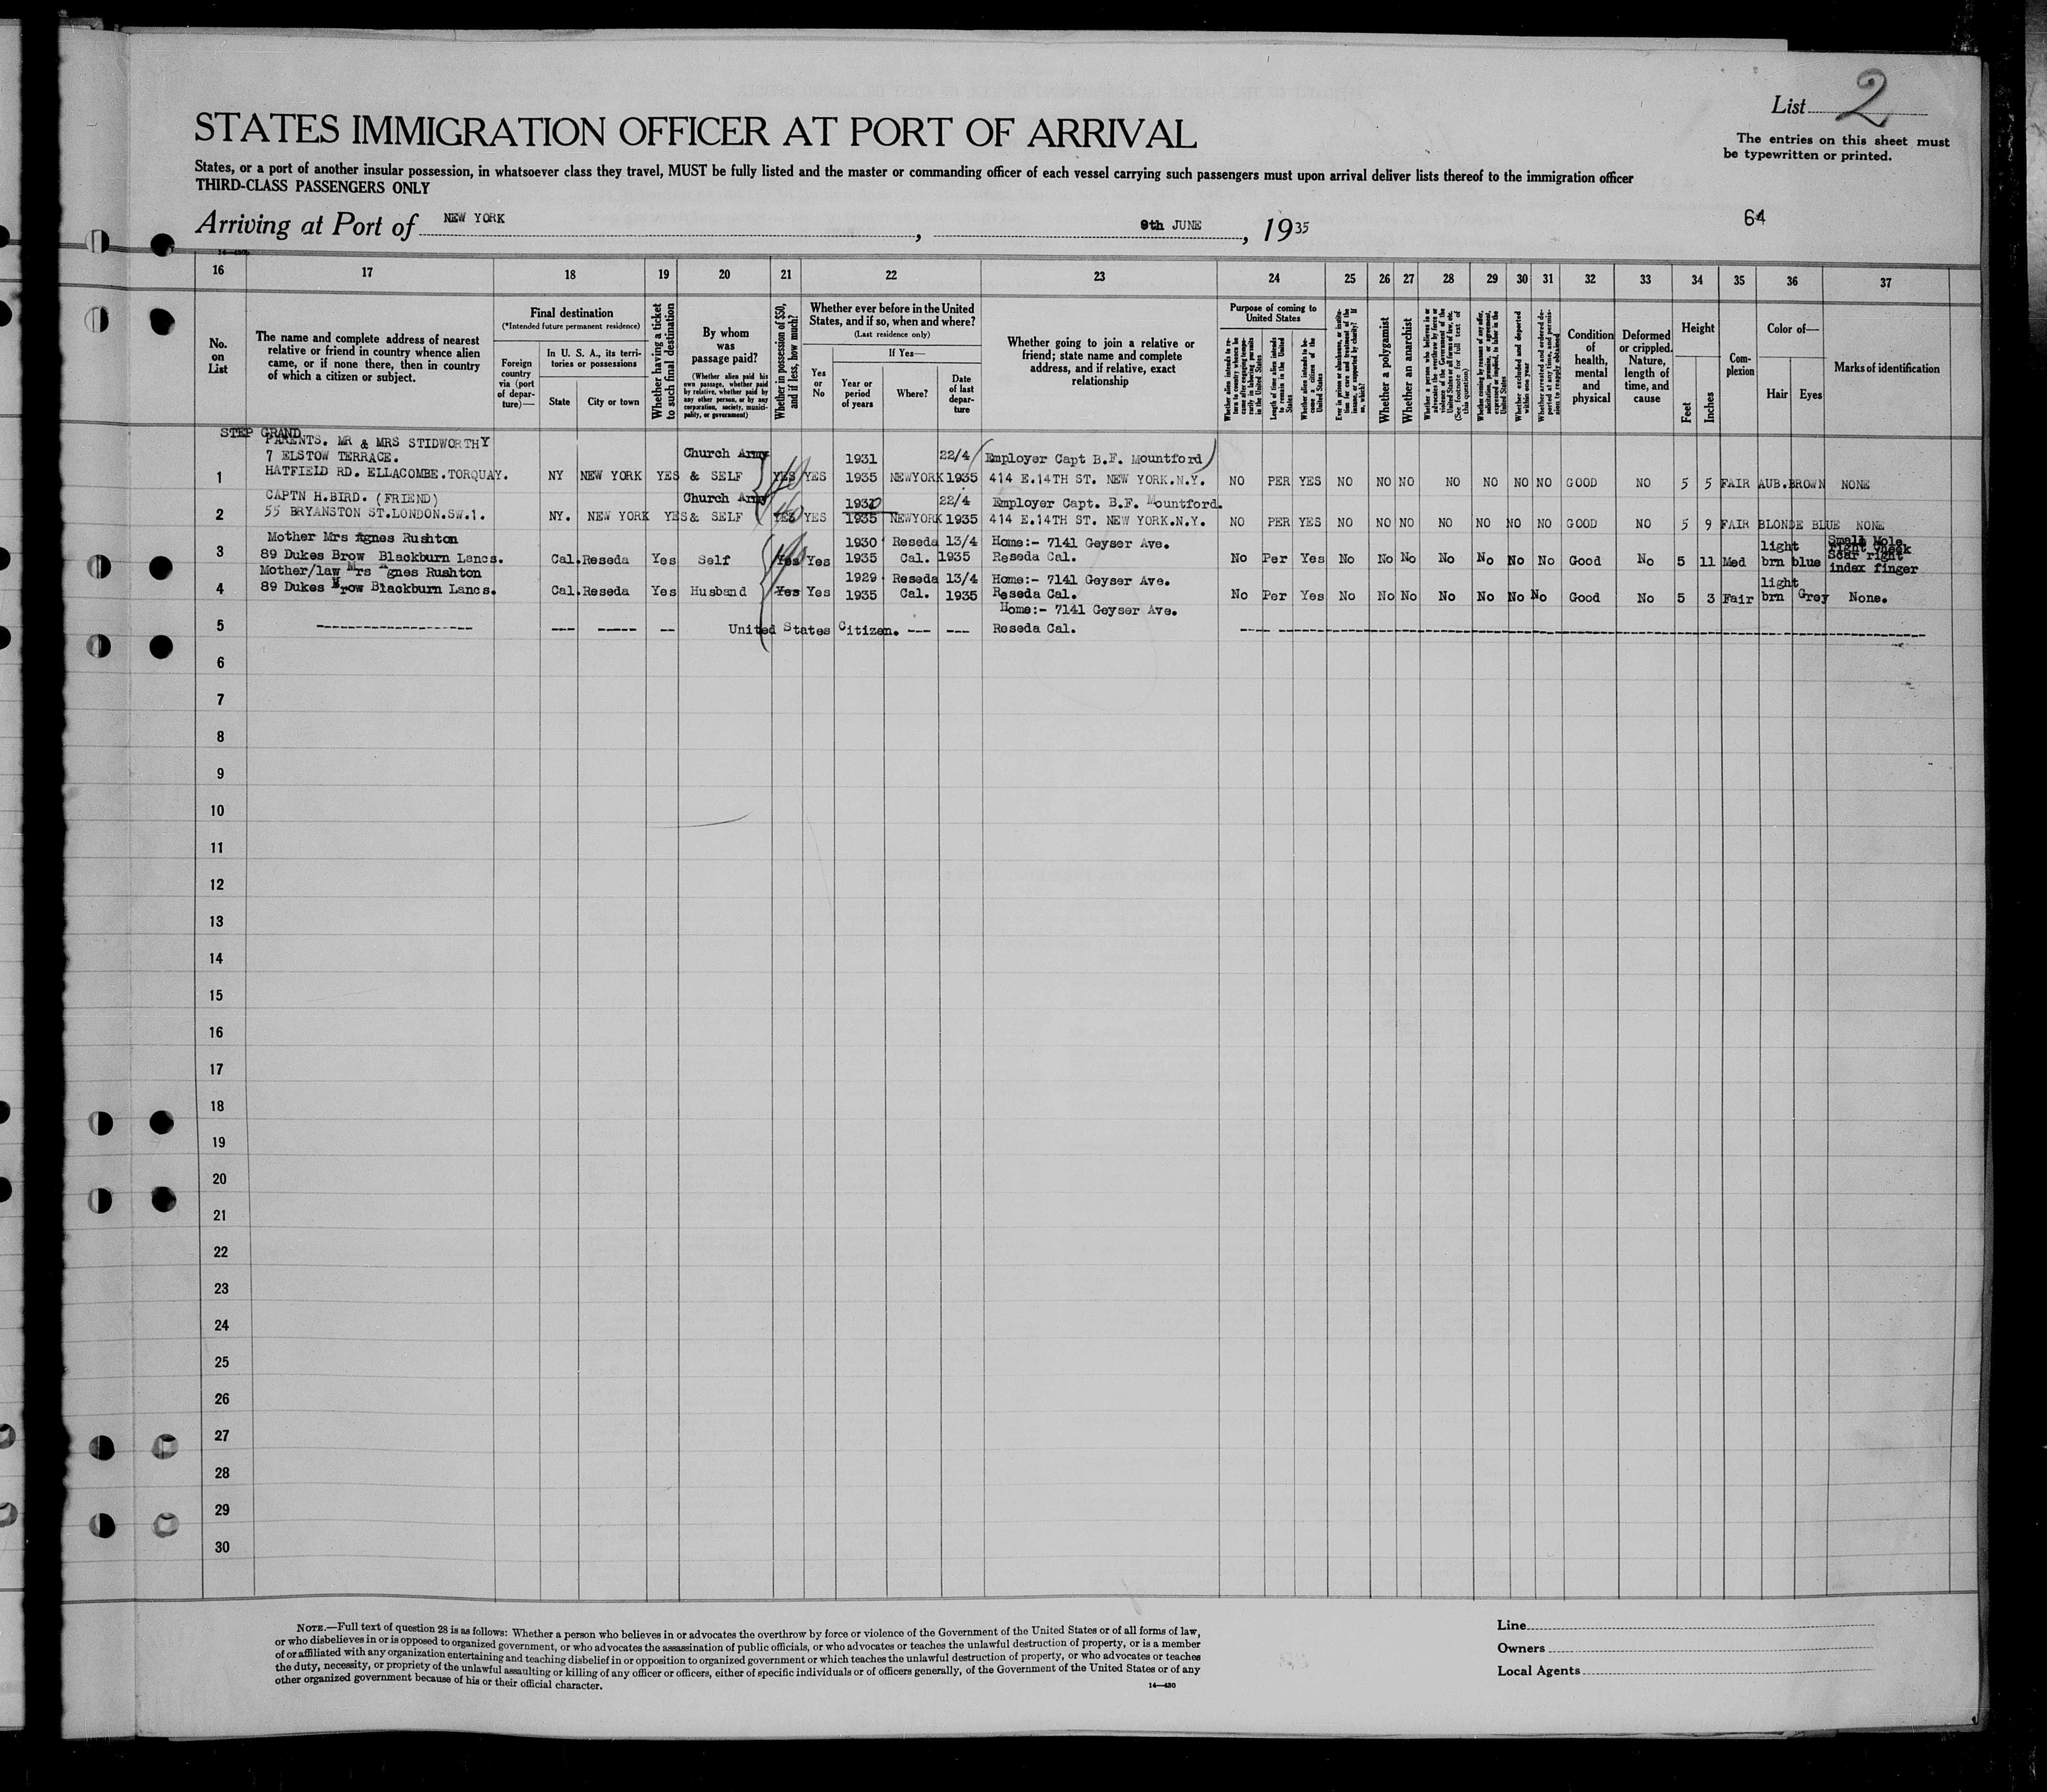 List 2
STATES IMMIGRATION OFFICER AT PORT OF ARRIVAL
The entries on this sheet must
be typewritten or printed.
States, or a port of another insular possession, in whatsoever class they travel, MUST be fully listed and the master or commanding officer of each vessel carrying such passengers must upon arrival deliver lists thereof to the immigration officer
THIRD-CLASS PASSENGERS ONLY
Arriving at Port of NEW YORK, 9th JUNE, 1935
64
16 17 18 19 20 21 22 23 24 25 26 27 28 29 30 31 32 33 34 35 36 37
No. on List
The name and complete address of nearest relative or friend in country whence alien came, or if none there, then in country of which a citizen or subject.
Final destination
(*Intended future permanent residence)
Foreign country via (port of departure)—
In U. S. A., its territories or possessions
State
City or town
Whether having a ticket to such final destination
By whom was passage paid?
(Whether alien paid his own passage, whether paid by relative, whether paid by any other person, or by any corporation, society, municipality, or government)
Whether in possession of $50, and if less, how much?
Whether ever before in the United States, and if so, when and where?
(Last residence only)
Yes or No
If Yes—
Year or period of years
Where?
Date of last departure
Whether going to join a relative or friend; state name and complete address, and if relative, exact relationship
Purpose of coming to United States
Whether alien intends to return to country whence he came after engaging temporarily in laboring pursuits in the United States
Length of time alien intends to remain in the United States
Whether alien intends to become a citizen of the United States
Ever in prison or almshouse, or institution for care and treatment of the insane, or supported by charity? If so, which?
Whether a polygamist
Whether an anarchist
Whether a person who believes in or advocates the overthrow by force or violence of the Government of the United States or all forms of law, etc. (See footnote for full text of this question)
Whether coming by reason of any offer, solicitation, promise, or agreement, expressed or implied, to labor in the United States
Whether excluded and deported within one year
Whether arrested and ordered deported at any time, and permission to reapply obtained
Condition of health, mental and physical
Deformed or crippled. Nature, length of time, and cause
Height
Feet
Inches
Complexion
Color of—
Hair
Eyes
Marks of identification
STEP GRAND
PARENTS. MR & MRS STIDWORTHY
7 ELSTOW TERRACE. Church Army 1931 22/4 Employer Capt B.F. Mountford
1 HATFIELD RD. ELLACOMBE.TORQUAY. NY NEW YORK YES & SELF YES YES 1935 NEWYORK 1935 414 E.14TH ST. NEW YORK.N.Y. NO PER YES NO NO NO NO NO NO NO GOOD NO 5 5 FAIR AUB. BROWN NONE
CAPTN H.BIRD. (FRIEND) Church Army 22/4 Employer Capt. B.F. Mountford.
2 55 BRYANSTON ST.LONDON.SW.1. NY. NEW YORK YES & SELF YES YES 1935 NEWYORK 1935 414 E.14TH ST. NEW YORK.N.Y. NO PER YES NO NO NO NO NO NO NO GOOD NO 5 9 FAIR BLONDE BLUE NONE
Mother Mrs Agnes Rushton 1930 Reseda 13/4 Home:- 7141 Geyser Ave. light Small Mole right Cheek
3 89 Dukes Brow Blackburn Lancs. Cal. Reseda Yes Self Yes Yes 1935 Cal. 1935 Reseda Cal. No Per Yes No No No No No No No Good No 5 11 Med brn blue Scar right index finger
Mother/law Mrs Agnes Rushton 1929 Reseda 13/4 Home:- 7141 Geyser Ave. light
4 89 Dukes Brow Blackburn Lancs. Cal. Reseda Yes Husband Yes Yes 1935 Cal. 1935 Reseda Cal. No Per Yes No No No No No No No Good No 5 3 Fair brn Grey None.
Home:- 7141 Geyser Ave.
5 ------------------- --- ----- -- United States Citizen. --- --- Reseda Cal. ---- ----------
6
7
8
9
10
11
12
13
14
15
16
17
18
19
20
21
22
23
24
25
26
27
28
29
30
NOTE.—Full text of question 28 is as follows: Whether a person who believes in or advocates the overthrow by force or violence of the Government of the United States or of all forms of law,
or who disbelieves in or is opposed to organized government, or who advocates the assassination of public officials, or who advocates or teaches the unlawful destruction of property, or is a member
of or affiliated with any organization entertaining and teaching disbelief in or opposition to organized government or which teaches the unlawful destruction of property, or who advocates or teaches
the duty, necessity, or propriety of the unlawful assaulting or killing of any officer or officers, either of specific individuals or of officers generally, of the Government of the United States or of any
other organized government because of his or their official character.
14—430
Line
Owners
Local Agents